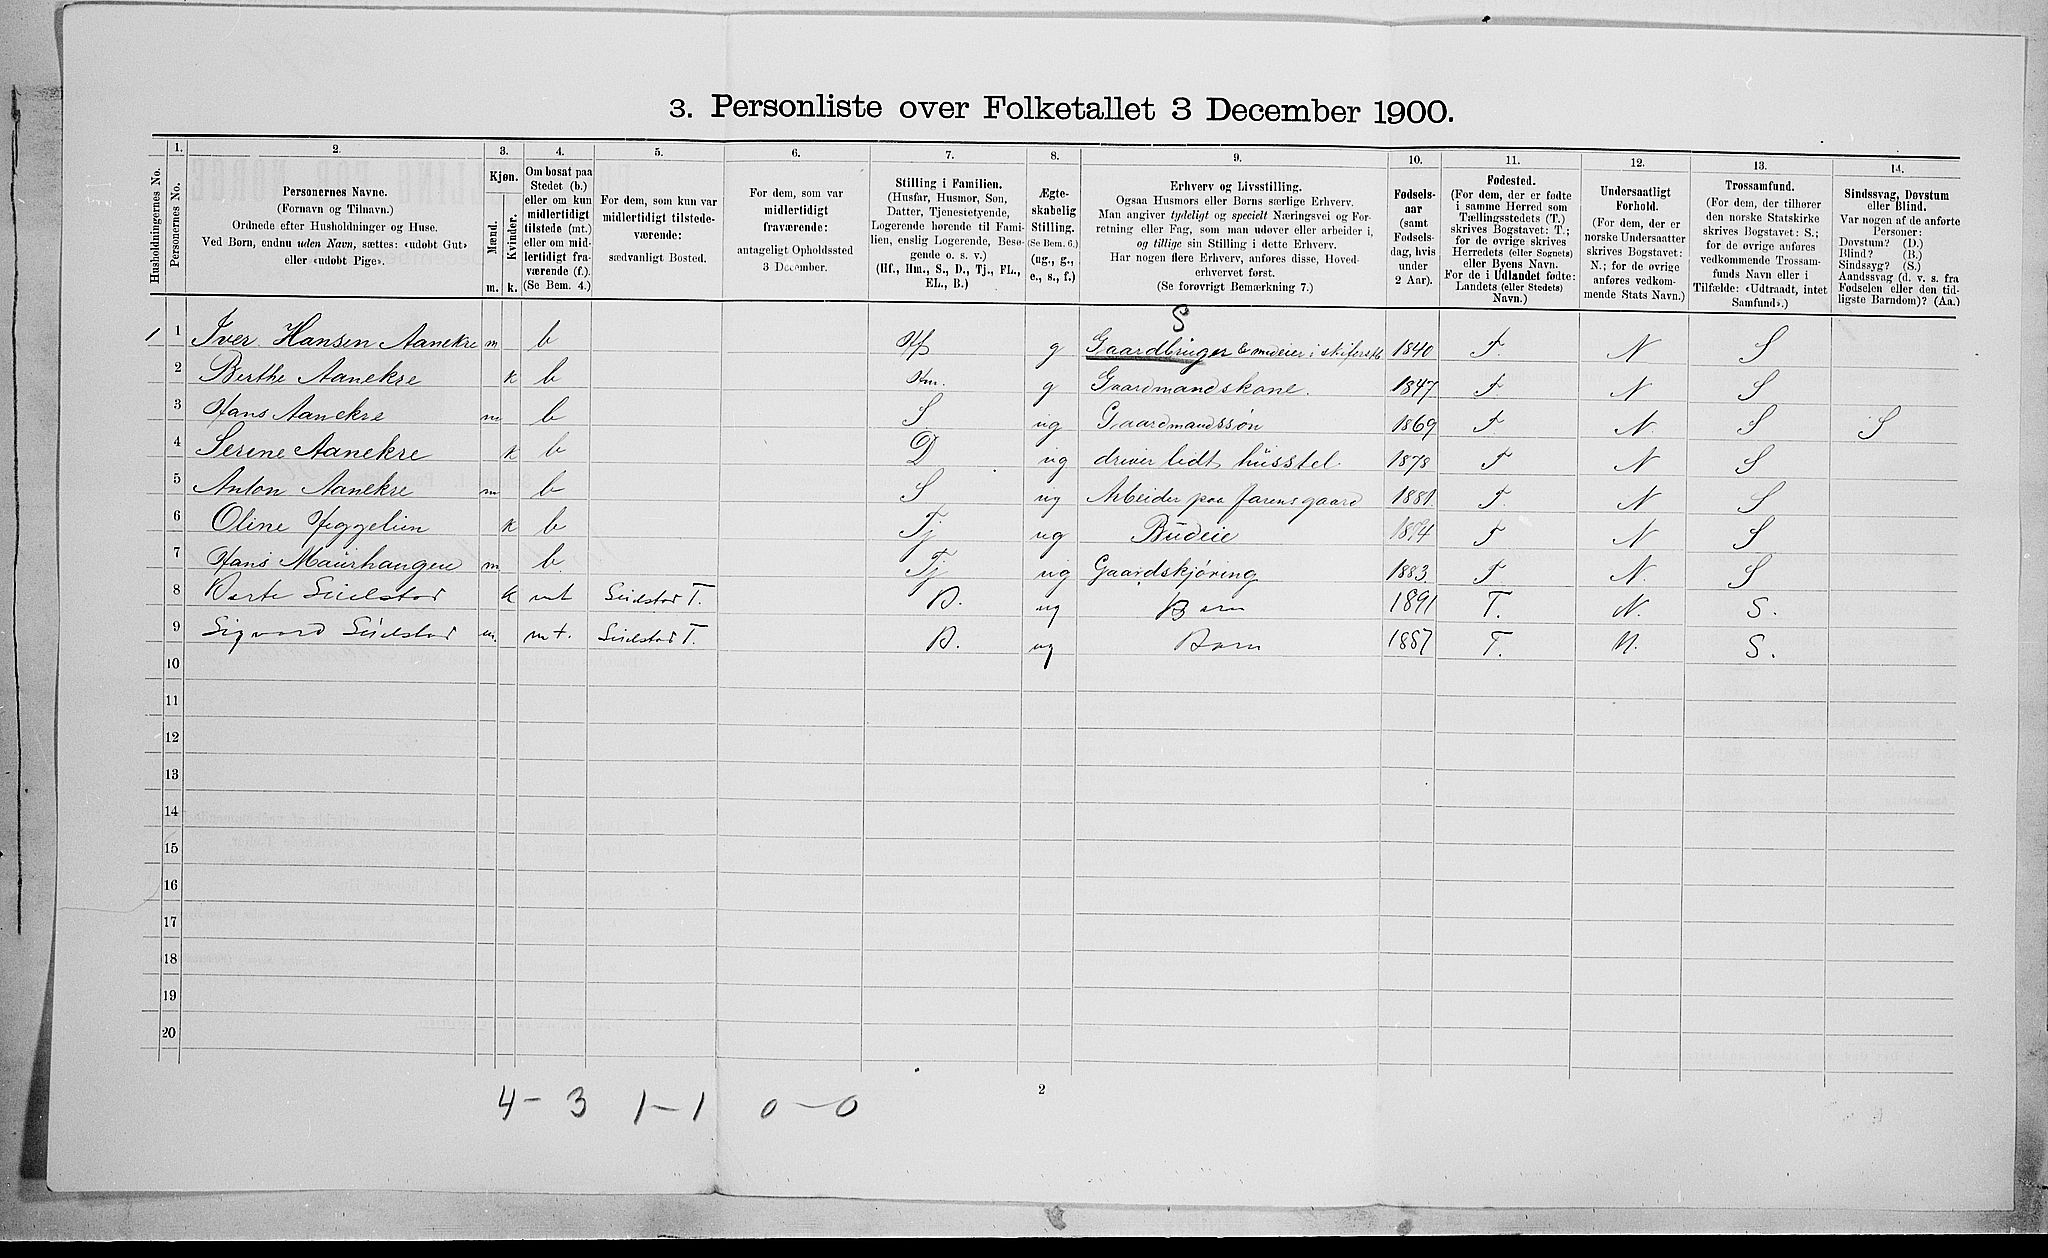 3. Personliste over Folketallet 3 December 1900.
Husholdningernes No.
1.
Personernes No.
2.
Personernes Navne.
(Fornavn og Tilnavn.)
Ordnede efter Husholdninger og Huse.
Ved Børn, endnu uden Navn, sættes: «udøbt Gut»
eller «udøbt Pige».
3.
Kjøn.
Mænd.
Kvinder.
m.
k.
4.
Om bosat paa
Stedet (b.)
eller om kun
midlertidigt
tilstede (mt.)
eller om mid-
lertidigt fra-
værende (f.).
(Se Bem. 4.)
5.
For dem, som kun var
midlertidigt tilstede-
værende:
sædvanligt Bosted.
6.
For dem, som var
midlertidigt
fraværende:
antageligt Opholdssted
3 December.
7.
Stilling i Familien.
(Husfar, Husmor, Søn,
Datter, Tjenestetyende,
Logerende hørende til Fami-
lien, enslig Logerende, Besø-
gende o. s. v.)
(Hf., Hm., S., D., Tj., FL.,
EL., B.)
8.
Ægte-
skabelig
Stilling.
(Se Bem. 6.)
(ug., g.,
e., s., f.)
9.
Erhverv og Livsstilling.
Ogsaa Husmors eller Børns særlige Erhverv.
Man angiver tydeligt og specielt Næringsvei og For-
retning eller Fag, som man udøver eller arbeider i,
og tillige sin Stilling i dette Erhverv.
Har nogen flere Erhverv, anføres disse, Hoved-
erhvervet først.
(Se forøvrigt Bemærkning 7.)
10.
Fødsels-
aar
(samt
Fødsels-
dag, hvis
under
2 Aar).
11.
Fødested.
(For dem, der er fødte
i samme Herred som
Tællingsstedets (T.)
skrives Bogstavet: T.;
for de øvrige skrives
Herredets (eller Sognets)
eller Byens Navn.
For de i Udlandet fødte:
Landets (eller Stedets)
Navn.)
12.
Undersaatligt
Forhold.
(For dem, der er
norske Undersaatter
skrives Bogstavet:
N.; for de øvrige
anføres vedkom-
mende Stats Navn.)
13.
Trossamfund.
(For dem, der tilhører
den norske Statskirke
skrives Bogstavet: S.;
for de øvrige anføres
vedkommende Trossam-
funds Navn eller i
Tilfælde: «Udtraadt, intet
Samfund».)
14.
Sindssvag, Døvstum
eller Blind.
Var nogen af de anførte
Personer:
Døvstum? (D.)
Blind? (B.)
Sindssyg? (S.)
Aandssvag (d. v. s. fra
Fødselen eller den tid-
ligste Barndom)? (Aa.)
S
1 1 Iver Hansen Aanekre m b Hf g Gaardbruger & medeier i skiferstb 1840 T. N S
2 Berthe Aanekre k b Hm. g Gaardmandskone. 1847 T. N S
3 Hans Aanekre m b S. ug Gaardmandssøn 1869 T N. S S
4 Serene Aanekre k b D ug driver lidt husstel. 1878 T N S
5 Anton Aanekre m b S ug Arbeider paa Jarensgaard 1881. T. N S
6 Oline Heggelien k b Tj ug Budeie T N S
7 Hans Maurhaugen m b Tj ug Gaardskjøring 1883. T. N. S
8 Berte Suelstad k mt Suelstad T. B. ug Barn 1891 T. N. S.
9 Sigvard Suelstad m. mt. Suelstad T. B. ug Barn 1887 T. N. S.
10
11
12
13
14
15
16
17
18
19
20
2
4 - 3 1 - 1 0 - 0